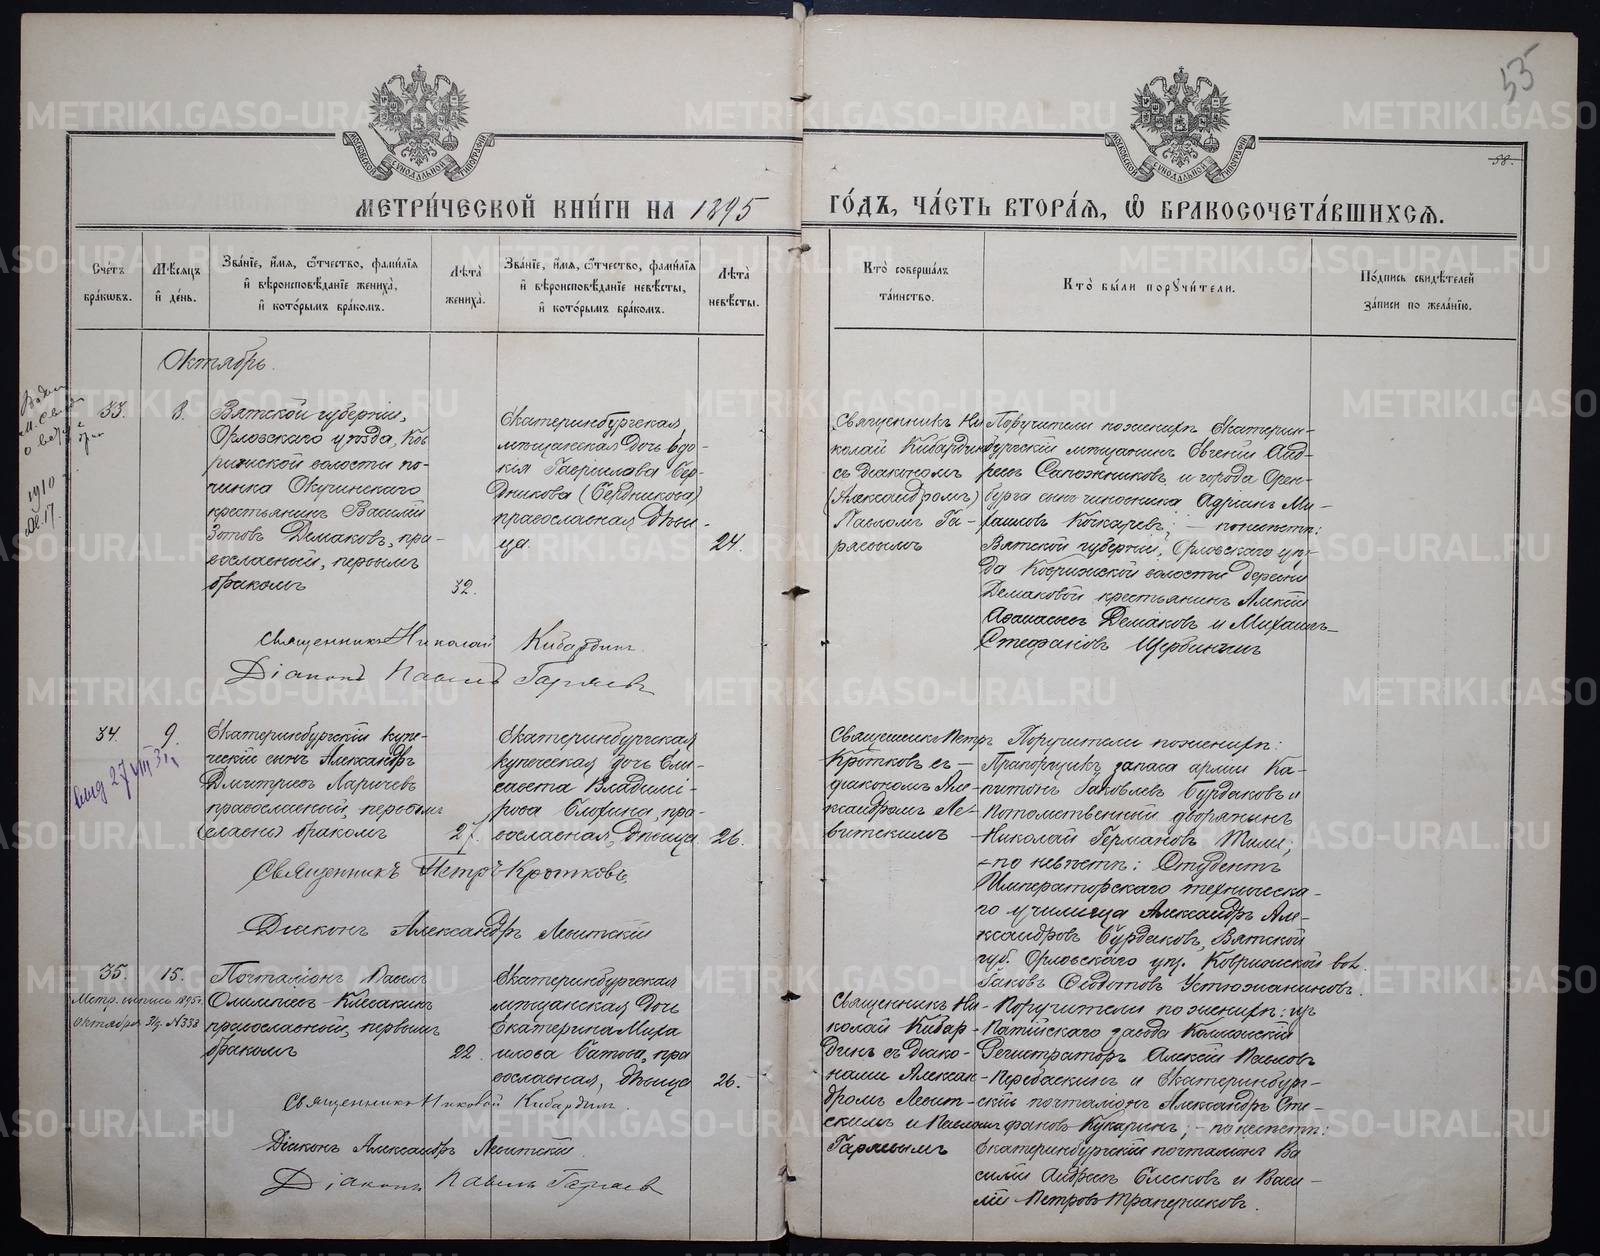 53
58.
МЕТРИ́ЧЕСКОЙ КНИ́ГИ НА 1895
ГО́ДЪ, ЧА́СТЬ ВТОРА́Я, Ѽ БРАКОСОЧЕТА́ВШИХСЯ.
Сче́тъ бра́кωвъ.
Мѣ́сяцъ и҆ де́нь.
Зва́нїе, и҆́мя, ѻ҆́тчество, фами́лїя
и҆ вѣроисповѣ́данїе жениха̀,
и҆ кото́рымъ бра́комъ.
Лѣ́та̀ жениха̀.
Зва́нїе, и҆́мя, ѻ҆́тчество, фами́лїя
и҆ вѣроисповѣ́данїе невѣ́сты,
и҆ кото́рымъ бра́комъ.
Лѣ́та̀ невѣ́сты.
Кто̀ соверша́лъ та́инство.
Кто̀ бы́ли порꙋчи́тели.
По́дпись свидѣ́телей за́писи по жела́нїю.
Октябрь.
1910
33.
8.
Вятской губерніи,
Орловскаго уѣзда, Ков
рижской волости по-
чинка Окучинскаго
крестьянинъ Василій
Зотовъ Демаковъ, пра-
вославный, первымъ
бракомъ
32.
Екатеринбургская
мѣщанская дочь Евдо-
кія Гаврилова Бер-
дникова (Бердникова)
православная, дѣви-
ца
24.
Священникъ Ни
колай Кибардинъ
съ діакономъ
(Александромъ)
Павломъ Га-
ряевымъ
Поручители по женихѣ: Екатерин-
бургскій мѣщанинъ Евгеній Анд-
реевъ Сапожниковъ и города Орен-
бурга сынъ чиновника Адріанъ Ми-
хаиловъ Кочкаревъ; — по невѣстѣ:
Вятской губерніи, Орловскаго уѣз-
да Коврижской волости деревни
Демаковой крестьянинъ Алексій
Афанасьевъ Демаковъ и Михаилъ
Стефановъ Щербининъ
Священникъ Николай Кибардинъ.
Діаконъ Павелъ Гаряевъ
34.
9.
Екатеринбургскій купе-
ческій сынъ Александръ
Дмитріевъ Ларичевъ
православный, первымъ
(славн) бракомъ
27.
Екатеринбургская
купеческая дочь Ели-
савета Владимі-
рова
православная, дѣвица
26.
Священникъ Петръ
Кротковъ съ
діакономъ Але-
ксандромъ Ле-
витскимъ
Поручители по женихѣ:
Прапорщикъ запаса арміи Ка-
питонъ Яковлевъ Бурдаковъ и
потомственный дворянинъ
Николай Германовъ Тиме;
— по невѣстѣ: Студентъ
Императорскаго техническа-
го училища Александръ Але-
ксандровъ Бурдаковъ, Вятской
губ. Орловскаго уѣз. Коврижской вол.
Яковъ Ѳедотовъ Устюжаниновъ.
Священникъ Петръ Кротковъ
Діаконъ Александръ Левитскій
35.
15.
Почталіонъ Павелъ
православный, первымъ
бракомъ
22.
Екатеринбургская
мѣщанская дочь
Екатерина Миха
илова Батова, пра
вославная, дѣвица
26.
Метр. выпись 1895г.
Октября 31д. №338
Священникъ Ни-
колай Кибар
динъ съ діако-
нами Алексан
дромъ Левит-
скимъ и Павломъ
Гаряевымъ
Поручители по женихѣ: изъ
завода Коллежскій
Регистраторъ Алексій Павловъ
Перебаскинъ и Екатеринбург-
скій почталіонъ Александръ Сте-
фановъ Кукаринъ; — по невѣстѣ:
Екатеринбургскій почталіонъ Ва
силій Андреевъ Елисковъ и Васи-
лій Петровъ Трапезниковъ.
Священникъ Николай Кибардинъ.
Діаконъ Александръ Левитскій.
Діаконъ Павелъ Гаряевъ
METRIKI.GASO-URAL.RU